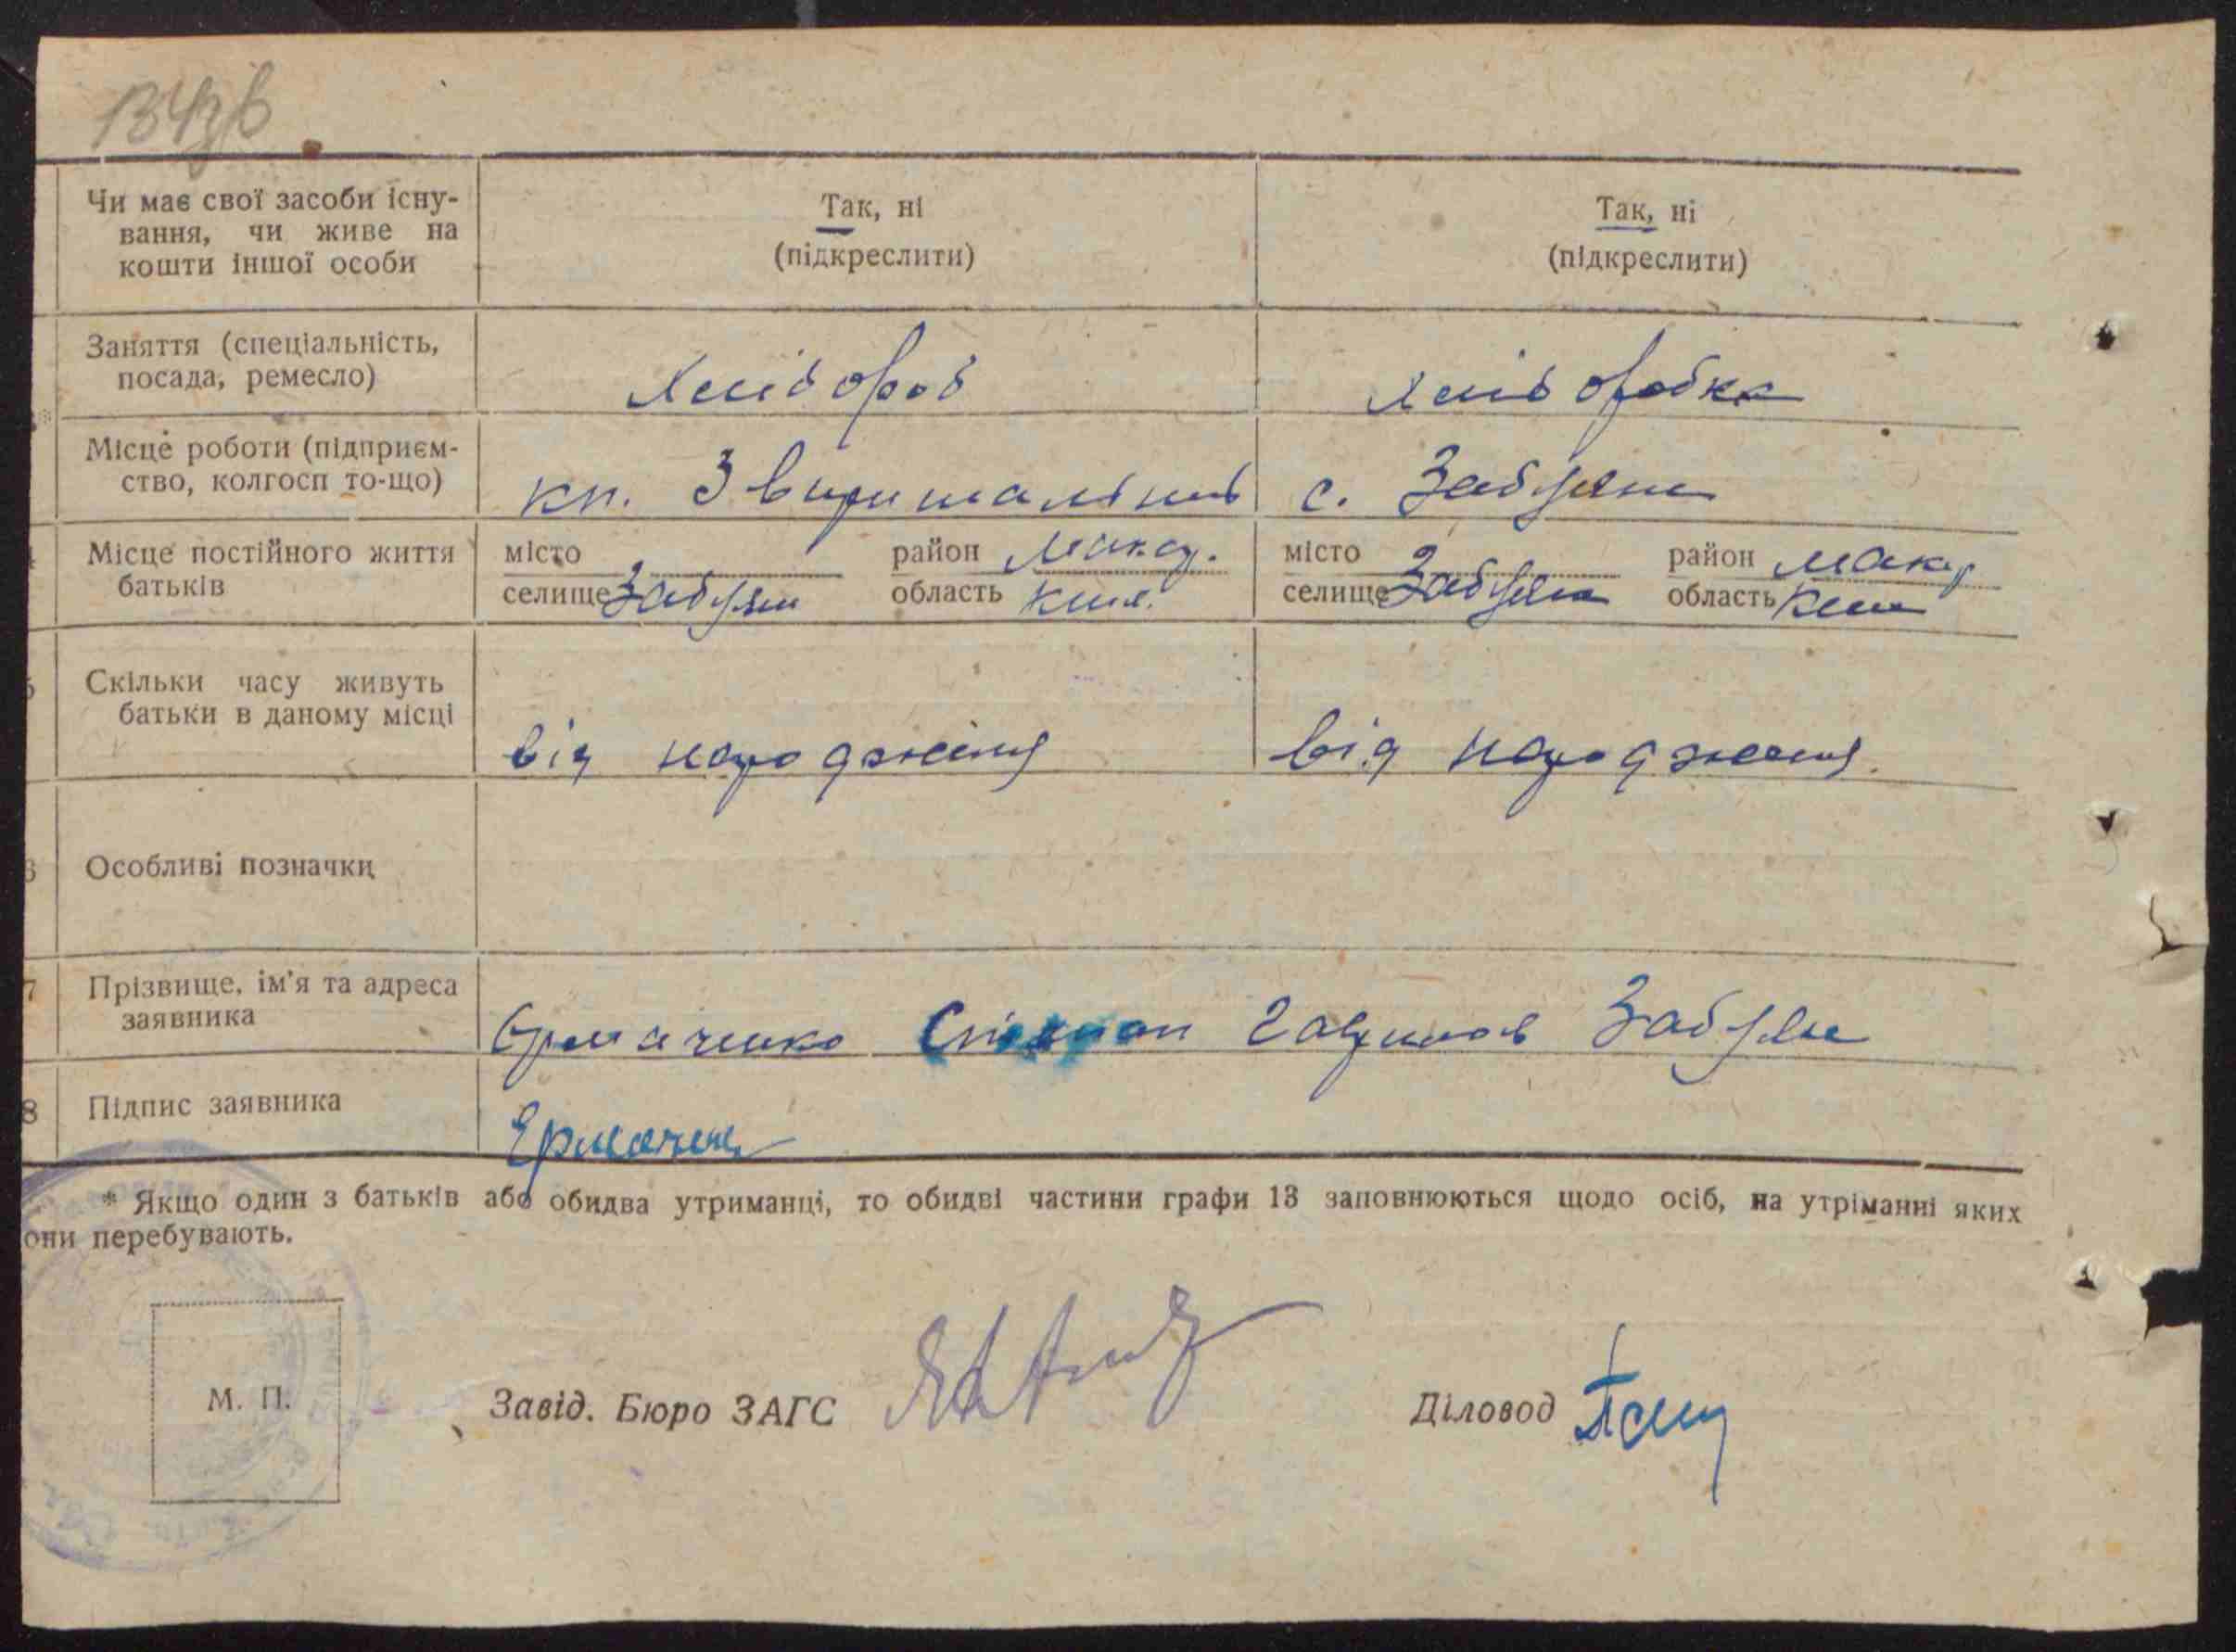 134зв
Чи має свої засоби існу-
вання, чи живе на
кошти іншої особи
Так, ні
(підкреслити)
Так, ні
(підкреслити)
Заняття (спеціальність,
посада, ремесло)
Хлібороб
Хліборобка
Місце роботи (підприєм-
ство, колгосп то-що)
кп.
с. Забуяння
4 Місце постійного життя
батьків
місто
селище Забуян
район Макар.
область Київ.
місто
селище Забуян
район Макар
область Київ
5 Скільки часу живуть
батьки в даному місці
від народження
від народження.
6 Особливі позначки
7 Прізвище, ім'я та адреса
заявника
Єрмаченко Степан Забуян
8 Підпис заявника
Ермаченк
* Якщо один з батьків або обидва утриманці, то обидві частини графи 13 заповнюються щодо осіб, на утріманні яких
они перебувають.
М. П.
Завід. Бюро ЗАГС
Діловод